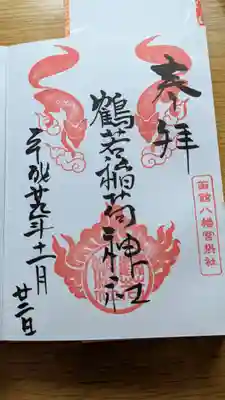 奉拝
函館八幡宮
鶴若稲荷神社
平成 年十一月
廿二日